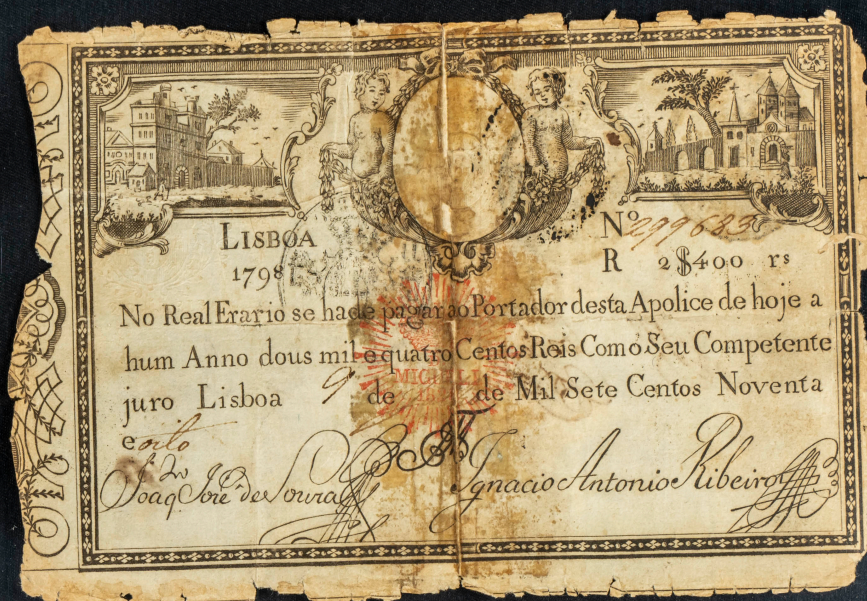 LISBOA
1798
Nº 299683
R 2$400 rs
No Real Erario se hade pagar ao Portador desta Apolice de hoje a
hum Anno dous mil e quatro Centos Reis Com o Seu Competente
juro Lisboa 9 de de Mil Sete Centos Noventa
e oito
MIGUEL I
Joaq Jose de Souza
Ignacio Antonio Ribeiro